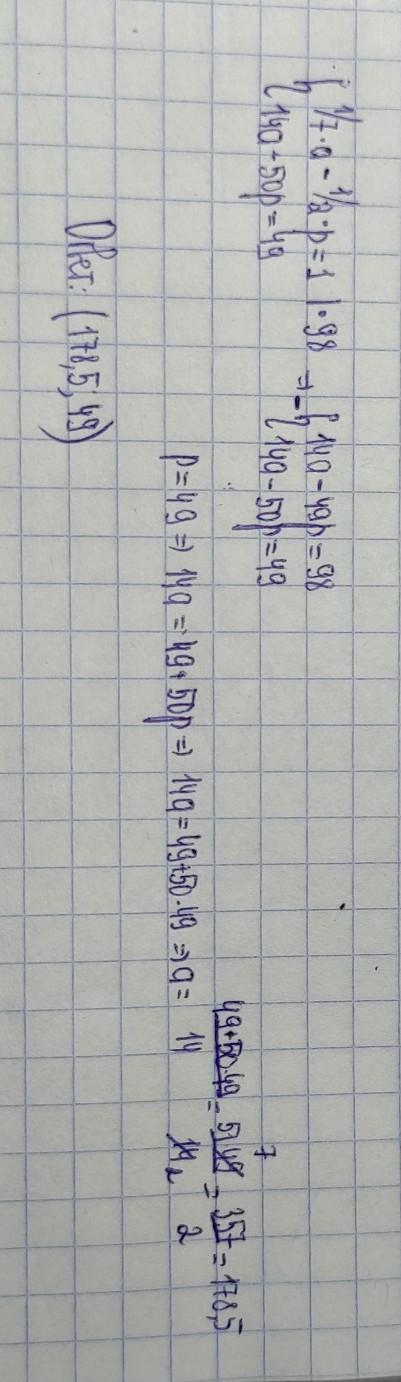 { 1/7·a - 1/2·p = 1 |·98 ⇒ { 14a - 49p = 98
{ 14a + 50p = 49 { 14a - 50p = 49
p = 49 ⇒ 14a = 49 + 50p ⇒ 14a = 49+50·49 ⇒ a = (49+50·49)/14 = (51·49 7)/(14 2) = 357/2 = 178,5
Ответ: (178,5; 49)